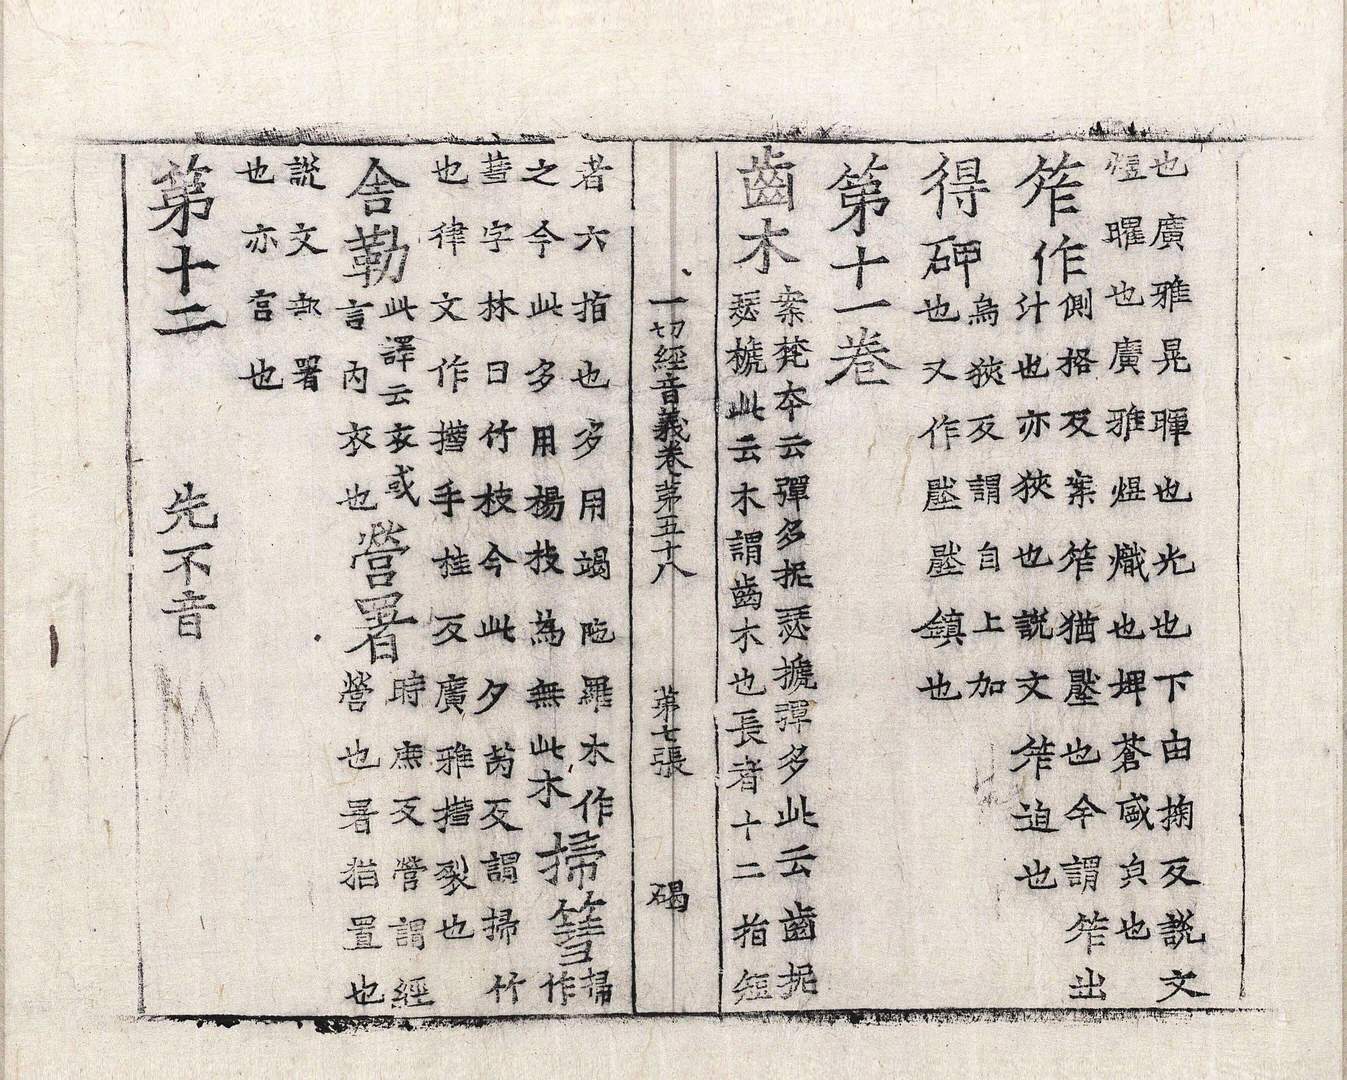 也廣雅晃暉也光也下由掬反說文
煜曜也廣雅煜熾也埤蒼盛皃也
笮作
側格反案笮猶壓也今謂笮出
汁也亦狹也說文笮迫也
得砷
烏狹反謂自上加
也又作壓壓鎮也
第十一卷
齒木
案梵本云彈多抳瑟搋彈多此云齒抳
瑟搋此云木謂齒木也長者十二指短
一切經音義卷第五十八 第七張 碣
者六指也多用竭陁羅木作
之今此多用楊枝為無此木
掃篲
掃作
篲字林曰竹枝今此夕芮反謂掃竹
也律文作㩨手桂反廣雅㩨裂也
舍勒
此譯云衣或
言內衣也
營署
時庶反營謂經
營也署猶置也
說文部署
也亦官也
第十二 先不音